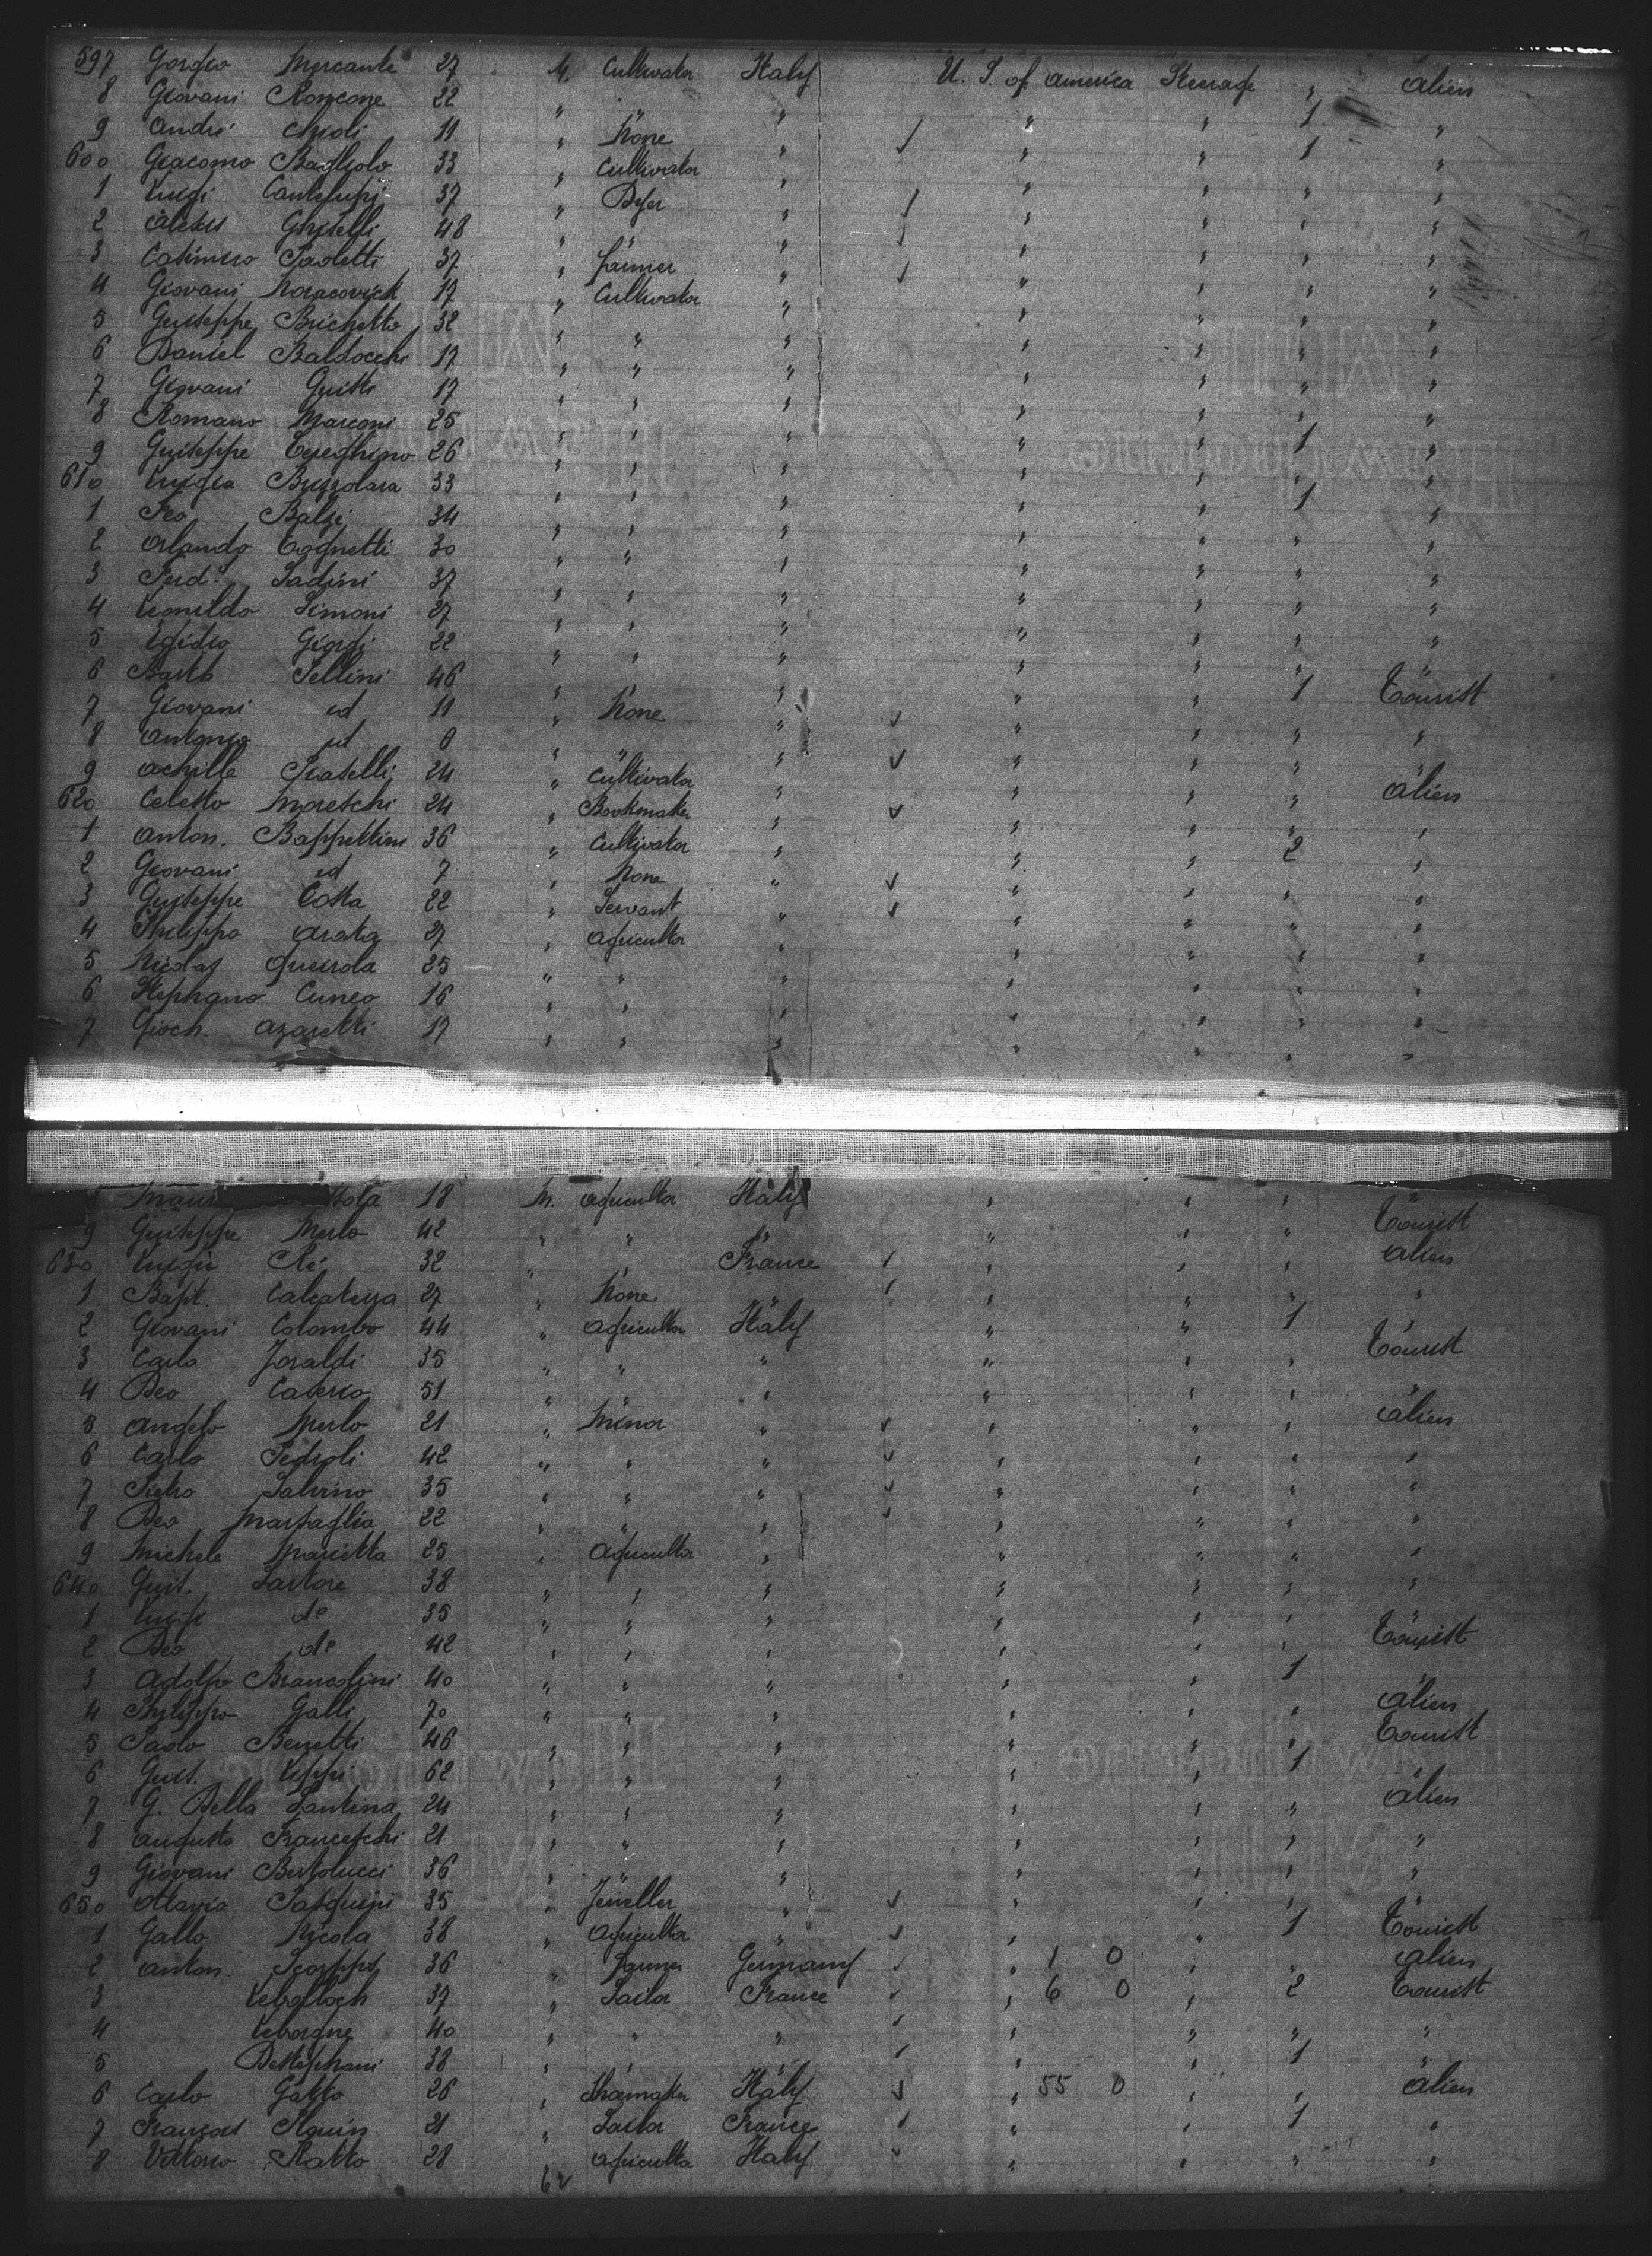 597 Giorgio Mercante 27 M. Cultivator Italy U. S. of America Steerage " alien
8 Giovani Roncone 22 " " " " " 1 "
9 André Chioli 11 " None " " " 1 "
600 Giacomo 33 " Cultivator " " " " "
1 Luigi Cantelupi 37 " Dyer " " " " "
2 Ghiselli 48 " " " " " " "
3 Casimiro Paoletti 37 " farmer " " " " "
4 Giovani 17 " Cultivator " " " " "
5 Guiseppe Brichetto 32 " " " " " " "
6 Daniel Baldocchi 17 " " " " " " "
7 Giovani 17 " " " " " " "
8 Romano Marconi 25 " " " " " 1 "
9 Guiseppe Cereghino 26 " " " " " " "
610 Luigia Buzzolara 33 " " " " " 1 "
1 Balzi 34 " " " " " " "
2 Orlando Tognetti 30 " " " " " " "
3 Ferd. Sadini 37 " " " " " " "
4 Leonildo Simoni 27 " " " " " " "
5 Egidio Giorgi 22 " " " " " " "
6 Barth Pellini 46 " " " " " 1 Tourist
7 Giovani id 11 " None " " " " "
8 Antonio id 6 " " " " " " "
9 Achille Fratelli 24 " Cultivator " " " " alien
620 Celesto Moretchi 24 " Bookmaker " " " " "
1 Anton. Bappettini 36 " Cultivator " " " 2 "
2 Giovani id 7 " None " " " " "
3 Guiseppe Costa 22 " Servant " " " " "
4 Philippo Arata 27 " agricultor " " " " "
5 Nicolas Queirola 25 " " " " " " "
6 Stephano Cuneo 16 " " " " " " "
7 Gioch. Azaretti 17 " " " " " " "
18 M. agricultor Italy " " " "
9 Guiseppe Merlo 42 " " " " " " Tourist
630 Luigia Ré 32 " " France " " " alien
1 Bapt. Calcaterra 27 " None " " " " "
2 Giovani Colombo 44 " agricultor Italy " " 1 "
3 Carlo Joraldi 35 " " " " " " Tourist
4 Deo Caserio 51 " " " " " " "
5 Angelo Merlo 21 " Minor " " " " alien
6 Carlo Pedroli 42 " " " " " " "
7 Pietro Salvino 35 " " " " " " "
8 Deo Marfaglia 22 " " " " " " "
9 Michele Marietta 25 " agricultor " " " " "
640 Guis. Sartore 38 " " " " " " "
1 Luigi do 35 " " " " " " "
2 Deo do 42 " " " " " " Tourist
3 Adolfo Brancolini 40 " " " " " 1 "
4 Philippo Galli 70 " " " " " " alien
5 Paolo Benetti 46 " " " " " " Tourist
6 Guis. Lippi 62 " " " " " 1 "
7 G. Della Santina 24 " " " " " " alien
8 Augusto Franceschi 21 " " " " " " "
9 Giovani Bertolucci 36 " " " " " " "
650 Ottavio Pasquini 35 " Jeweller " " " " "
1 Gallo Nicola 38 " agricultor " " " 1 Tourist
2 Anton. 36 " Farmer Germany " 1 0 " " alien
3 37 " Tailor France " 6 0 " 2 Tourist
4 Leborgne 40 " " " " " " "
5 Destephani 38 " " " " " 1 "
6 Carlo Gatto 26 " Shoemaker Italy " 55 0 " " alien
7 François 21 " Tailor France " " 1 "
8 Vittorio Ratto 28 agricultor Italy " " " "
62